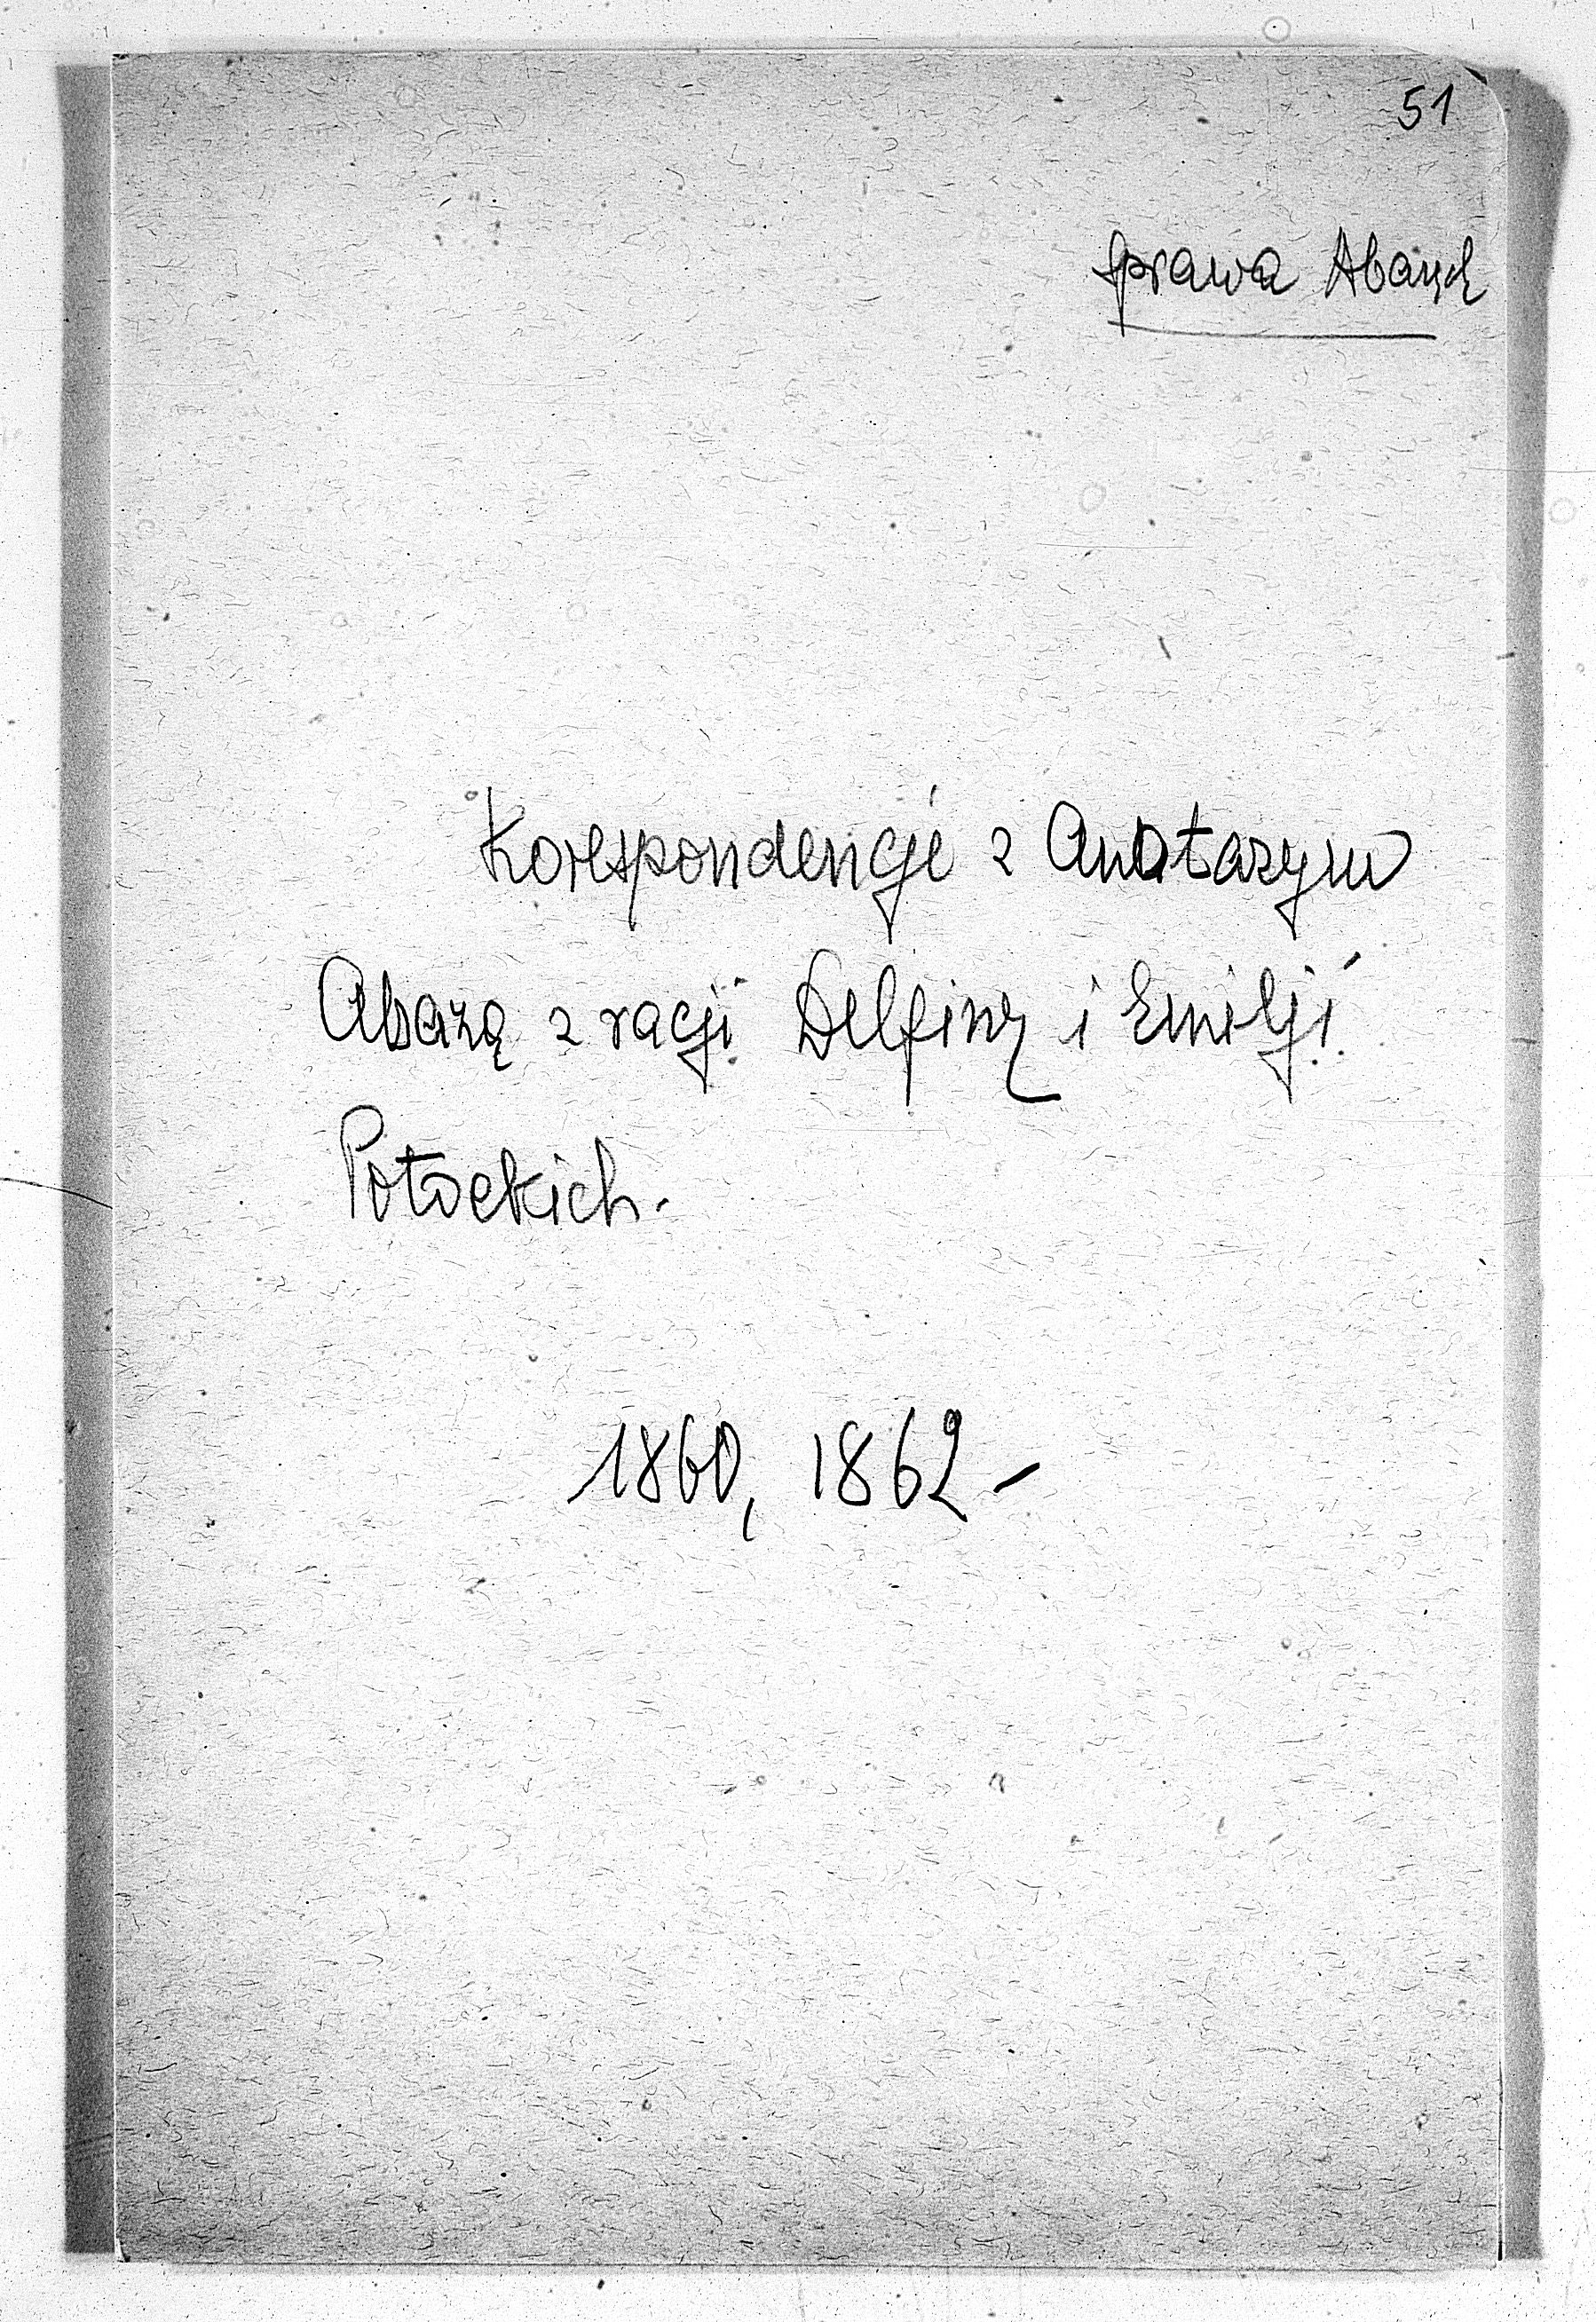 51
sprawa Abazy
Korespondencje z Anatazym
Abazą z racji Delfiny i Emilji
Potockich.
1860, 1862 –